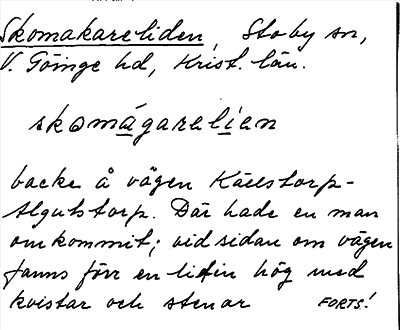 Skomakareliden, Stoby sn,
V. Göinge hd, Krist. län.
skomágareli̲en
backe å vägen Källstorp-
Algutstorp. Där hade en man
omkommit; vid sidan om vägen
fanns förr en liten hög med
kvistar och stenar FORTS!